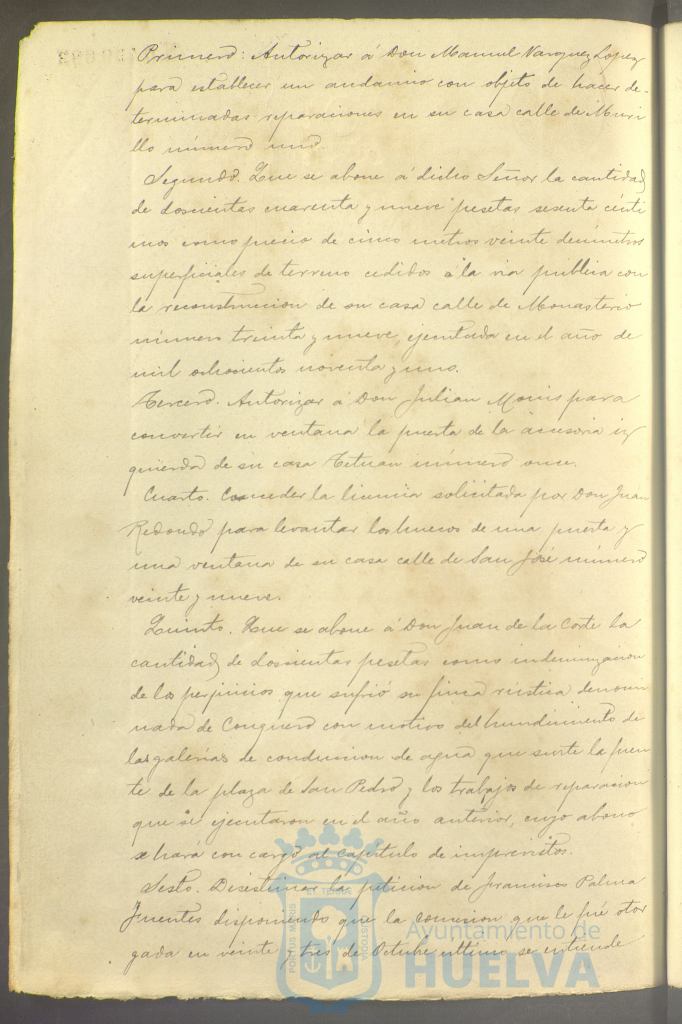 Primero: Autorizar á Don Manuel Vazquez Lopez
para establecer un andamio con objeto de hacer de-
terminadas reparaciones en su casa calle de Muri
llo número uno.
Segundo. Que se abone á dicho Señor la cantidad
de doscientas cuarenta y nueve pesetas sesenta cénti
mos como precio de cinco metros veinte decímetros
superficiales de terreno cedidos á la via pública con
la reconstruccion de su casa calle de Monasterio
número treinta y nueve, ejecutada en el año de
mil ochocientos noventa y uno.
Tercero. Autorizar á Don Julian Monis para
convertir en ventana la puerta de la accesoria iz
quierda de su casa Tetuan número once.
Cuarto. Conceder la licencia solicitada por Don Juan
Redondo para levantar los huecos de una puerta y
una ventana de su casa calle de San José número
veinte y nueve.
Quinto. Que se abone á Don Juan de la Corte la
cantidad de doscientas pesetas como indemnizacion
de los perjuicios que sufrió su finca rústica denomi
nada de Conquero con motivo del hundimiento de
las galerias de conduccion de agua que surte la fuen
te de la plaza de San Pedro y los trabajos de reparacion
que se ejecutaron en el año anterior, cuyo abono
se hará con cargo al capítulo de imprevistos.
Sesto. Desestimar la peticion de Francisco Palma
Fuentes disponiendo que la concesion que le fué otor
gada en veinte y tres de Octubre ultimo se entiende
PORTUS MARIS ET TERRAE CUSTODIA
Ayuntamiento de
HUELVA